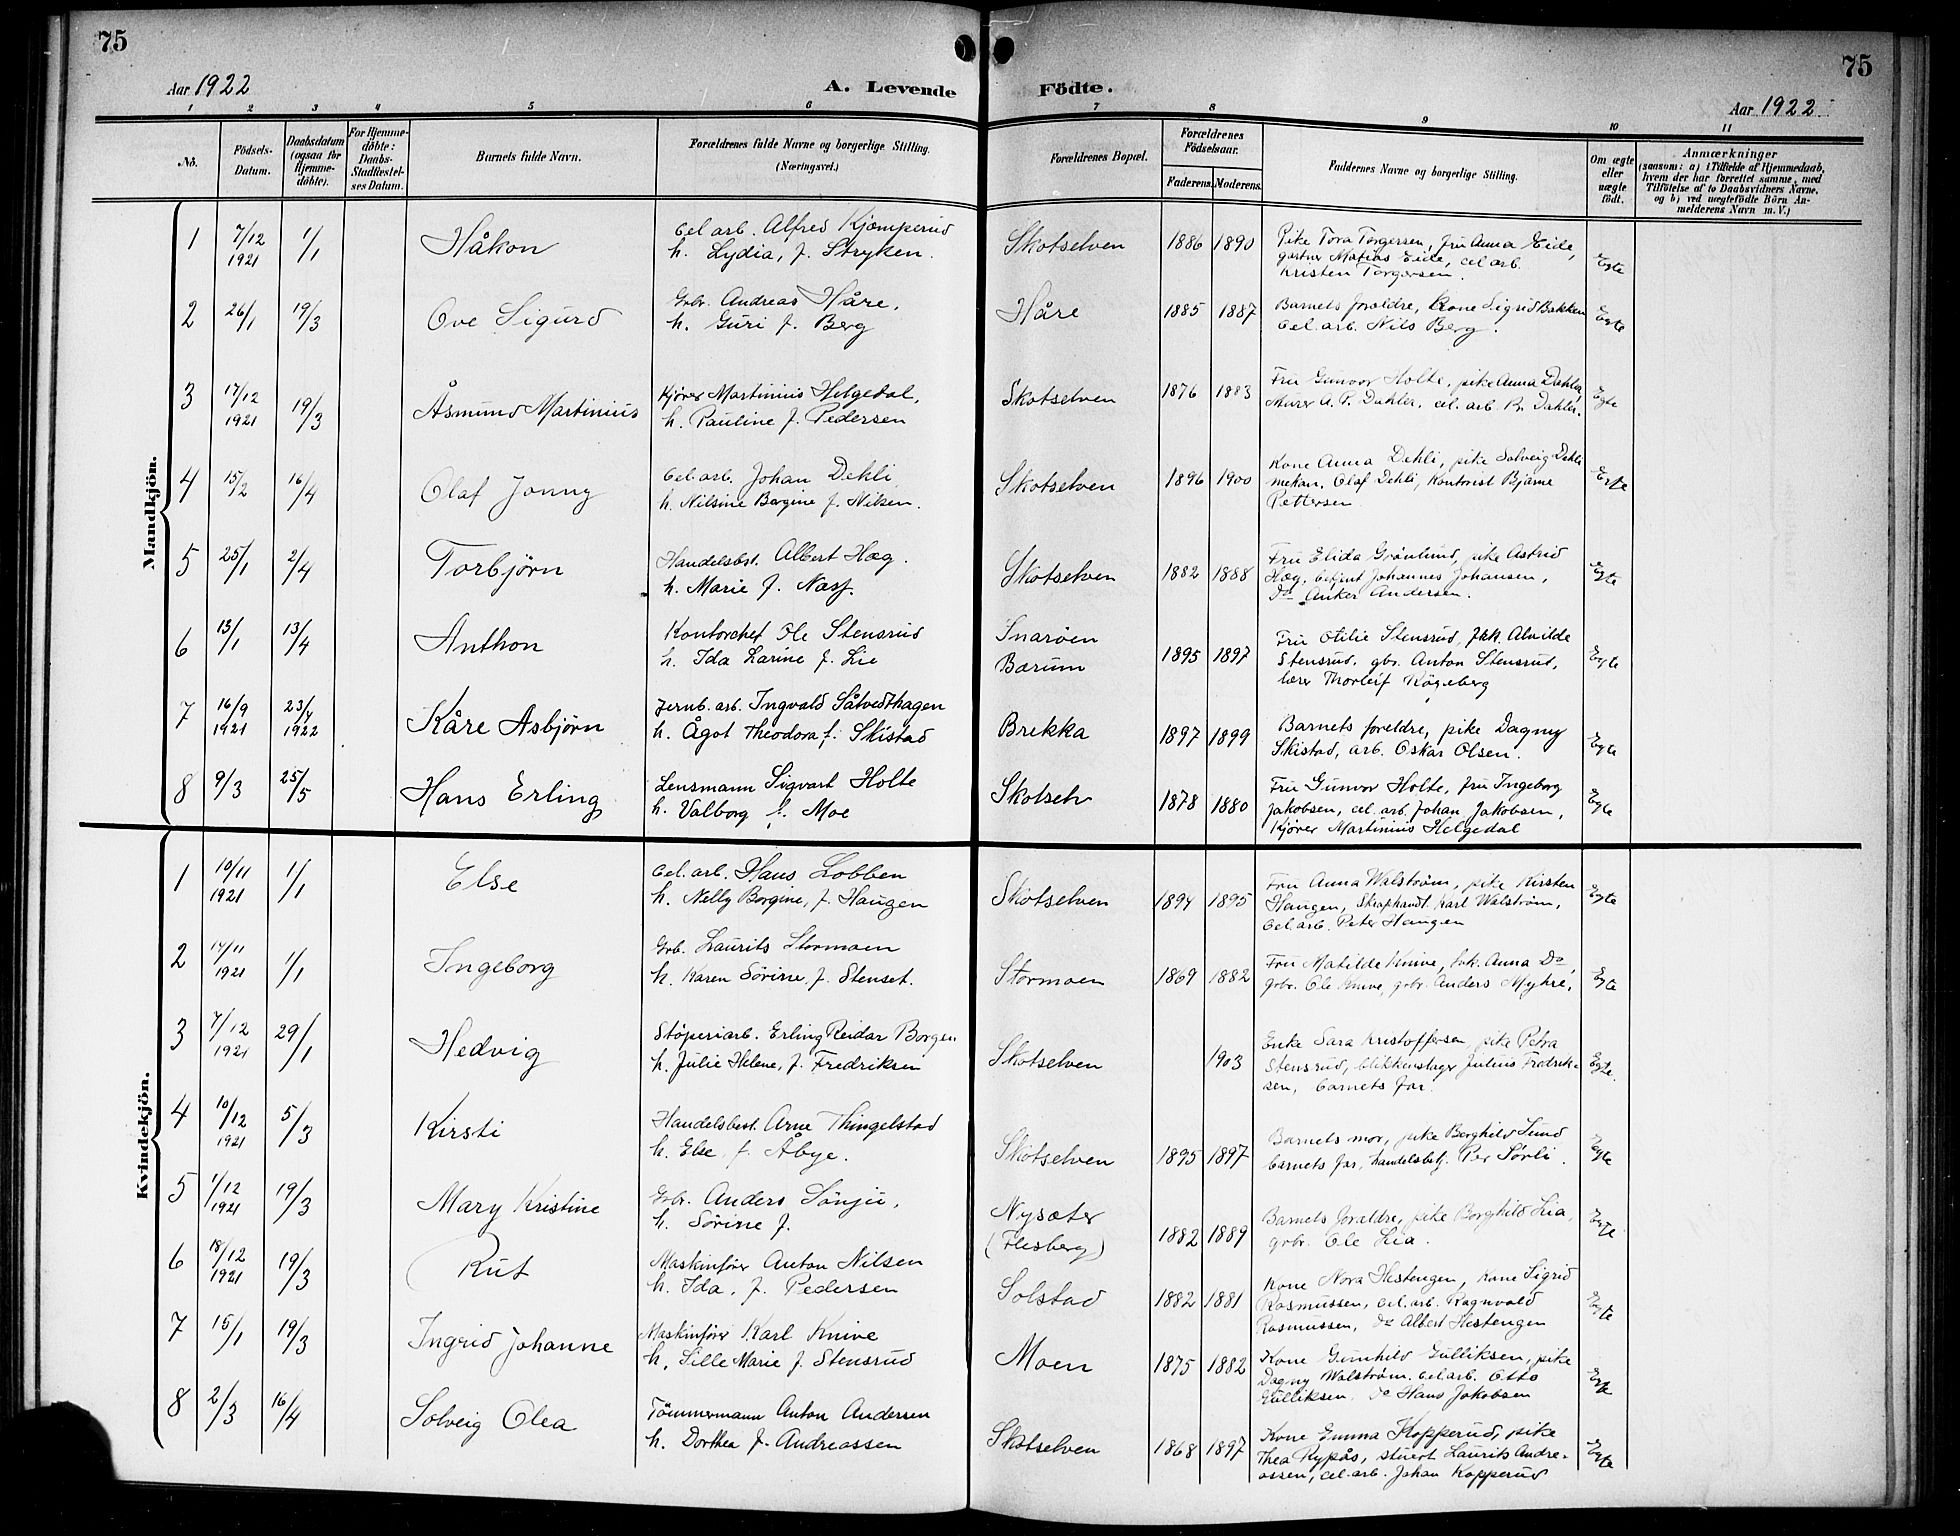 75
75
Aar 1922
A. Levende Födte.
Aar 1922
1 2 3 4 5 6 7 8 9 10 11
No.
Födsels-Datum.
Daabsdatum (ogsaa for Hjemmedöbte).
For Hjemmedöbte: Daabs-Stadfæstelses Datum.
Barnets fulde Navn.
Forældrenes fulde Navne og borgerlige Stilling. (Næringsvei.)
Forældrenes Bopæl.
Forældrenes Födselsaar.
Faderens. Moderens.
Faddernes Navne og borgerlige Stilling.
Om ægte eller uægte födt.
Anmærkninger
(saasom: a) i Tilfælde af Hjemmedaab, hvem der har forrettet samme, med Tilföielse af to Daabsvidners Navne, og b) ved uægtefödte Börn Anmelderens Navn m. V.)
Mandkjön.
1 7/12 1921 1/1 Håkon Cel. arb. Alfred Kjæmperud
h. Lydia, f. Stryken. Skotselven 1886 1890 Pike Tora Torgersen, fru Anna Eide,
gartner Matias Eide, cel. arb.
Kristen Torgersen. Egte
2 26/1 19/3 Ove Sigurd Grbr. Andreas Håre,
h. Guri f. Berg Håre 1885 1887 Barnets forældre, Kone Sigrid Bakken
Cel. arb. Nils Berg. Egte
3 17/12 1921 19/3 Åsmund Martinius Kjører Martinius Helgedal,
h. Pauline f. Pedersen Skotselven 1876 1883 Fru Gunvor Holte, pike Anna Dahler,
Murer A. P. Dahler, cel. arb. Dahler. Egte
4 15/2 16/4 Olaf Jonny Cel. arb. Johan Dehli,
h. Nilsine Borgine f. Nilsen. Skotselven 1896 1900 Kone Anna Dehli, pike Solveig Dehli
mekan. Olaf Dehli, Kontorist Bjarne
Pettersen Egte
5 25/1 2/4 Torbjørn Handelsbst. Albert Hæg.
h. Marie f. Skotselven 1882 1888 Fru Elida Grönlund, pike Astrid
Hæg, Johannes Johansen,
Do Anker Andersen. Egte
6 13/1 13/4 Anthon Kontorchef Ole Stensrud
h. Ida Larine f. Lie Snarøen
Bærum 1895 1897 Fru Otilie Stensrud, frk. Alvilde
Stensrud, gbr. Anton Stensrud,
lærer Thorleif Rögeberg Egte
7 16/9 1921 23/4 1922 Kåre Asbjørn Jernb. arb. Ingvald Såtvedthagen
h. Ågot Theodora f. Skistad Brekka 1897 1899 Barnets foreldre, pike Dagny
Skistad, arb. Oskar Olsen. Egte
8 9/3 25/5 Hans Erling Lensmann Sigvart Holte
h. Valborg f. Moe Skotselv 1878 1880 Fru Gunvor Holte, fru Ingeborg
Jakobsen, cel. arb. Johan Jakobsen,
Kjører Martinius Helgedal Egte
Kvindekjön.
1 10/11 1921 1/1 Else Cel. arb. Hans Lobben
h. Nelly Borgine, f. Haugen Skotselven 1894 1895 Fru Anna Walström, pike Kirsten
Haugen, Skraphandl. Karl Walström,
Cel. arb. Peter Haugen Egte
2 17/11 1921 1/1 Ingeborg Grb. Laurits Stormoen
h. Karen Sørine, f. Stenset. Stormoen 1869 1882 Fru Matilde Knive, frk. Anna Do,
grbr. Ole Knive, grbr. Anders Myhre. Egte
3 7/12 1921 29/1 Hedvig Støperiarb. Erling Reidar Borgen
h. Julie Helene, f. Fredriksen Skotselven 1903 Enke Sara Kristoffersen, pike Petra
Stensrud, blikkenslager Julius Fredrik-
sen, barnets far. Egte
4 10/12 1921 5/3 Kirsti Handelsbest. Arne Thingelstad
h. Else f. Åbye. Skotselven 1895 1897 Barnets mor, pike Borghild Lund
barnets far, handelsbetj. Per Sørli. Egte
5 1/12 1921 19/3 Mary Kristine Grbr. Anders Sönju,
h. Sörine f. Nysæter
(Flesberg) 1882 1889 Barnets forældre, pike Borghild Lia,
grbr. Ole Lia. Egte
6 18/12 1921 19/3 Rut Maskinfører Anton Nilsen
h. Ida, f. Pedersen Solstad 1882 1881 Kone Nora Hestengen, Kone Sigrid
Rasmussen, cel. arb. Ragnvald
Rasmussen, Do Albert Hestengen Egte
7 15/1 19/3 Ingrid Johanne Maskinfører Karl Knive
h. Sille Marie f. Stensrud Moen 1875 1882 Kone Gunhild Gulliksen, pike
Dagny Walström, cel. arb. Otto
Gulliksen, Do Hans Jakobsen Egte
8 2/3 16/4 Solveig Olea Tömmermann Anton Andersen
h. Dorthea f. Andreassen Skotselven 1868 1897 Kone Emma Kopperud, pike
Thea Rypås, stuert Laurits Andre-
assen, cel. arb. Johan Kopperud Egte